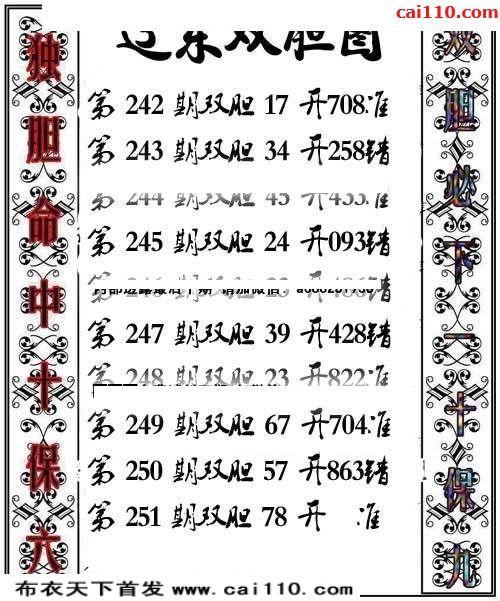 cai110.com
辽东双胆图
独胆命中十保六
双胆必下一十保九
第 242 期双胆 17 开708准
第 243 期双胆 34 开258错
第 244 期双胆 45 开433准
第 245 期双胆 24 开093错
第 247 期双胆 39 开428错
第 248 期双胆 23 开822准
第 249 期双胆 67 开704准
第 250 期双胆 57 开863错
第 251 期双胆 78 开 准
布衣天下首发 www.cai110.com